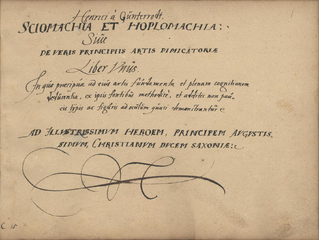 Henrici à Günterrodt.
SCIOMACHIA ET HOPLOMACHIA:
Siue
DE VERIS PRINCIPIIS ARTIS DIMICATORIÆ
Liber Vnus.
In quo præcipua ad eius artis fundamenta et plenam cognitionem
ex ipsis fontibus methodicè, et additis non pau,
cis typis ac figuris ad oculum quasi demonstrantur
AD ILLVSTRISSIMVM HEROEM, PRINCIPEM AVGVSTIS,
SIMVM, CHRISTIANVM DVCEM SAXONIÆ: